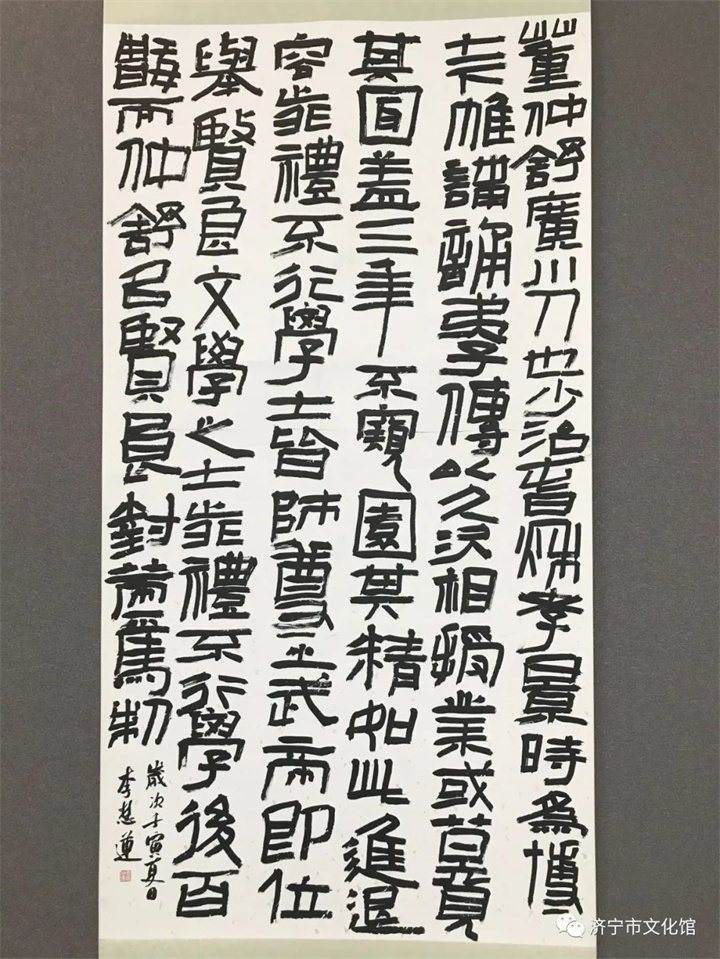 董仲舒廣川人也少治春秋孝景時爲博
士下帷講誦弟子傳以久次相授業或莫見
其面盖三年不窺園其精如此進退
容非禮不行學士皆師尊之武帝即位
舉賢良文學之士非禮不行學後百
數而仲舒以賢良對策焉制
歲次壬寅夏日
李慧蓮
济宁市文化馆